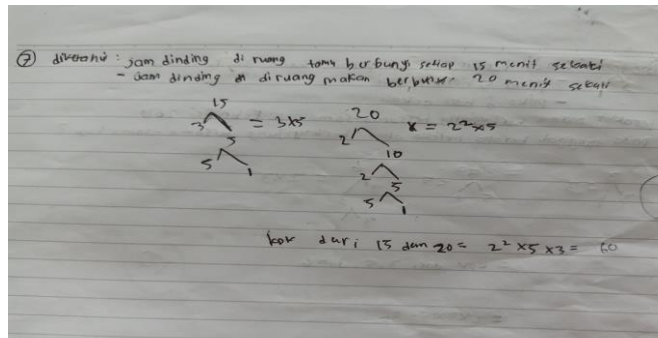 7 diketahui : jam dinding di ruang tamu berbunyi setiap 15 menit sekali
- Jam dinding di ruang makan 20 menit sekali
15 20
3 = 3x5 2 = 2²x5
5 10
5 1 2 5
5 1
kpk dari 15 dan 20 = 2² x5 x3 = 60